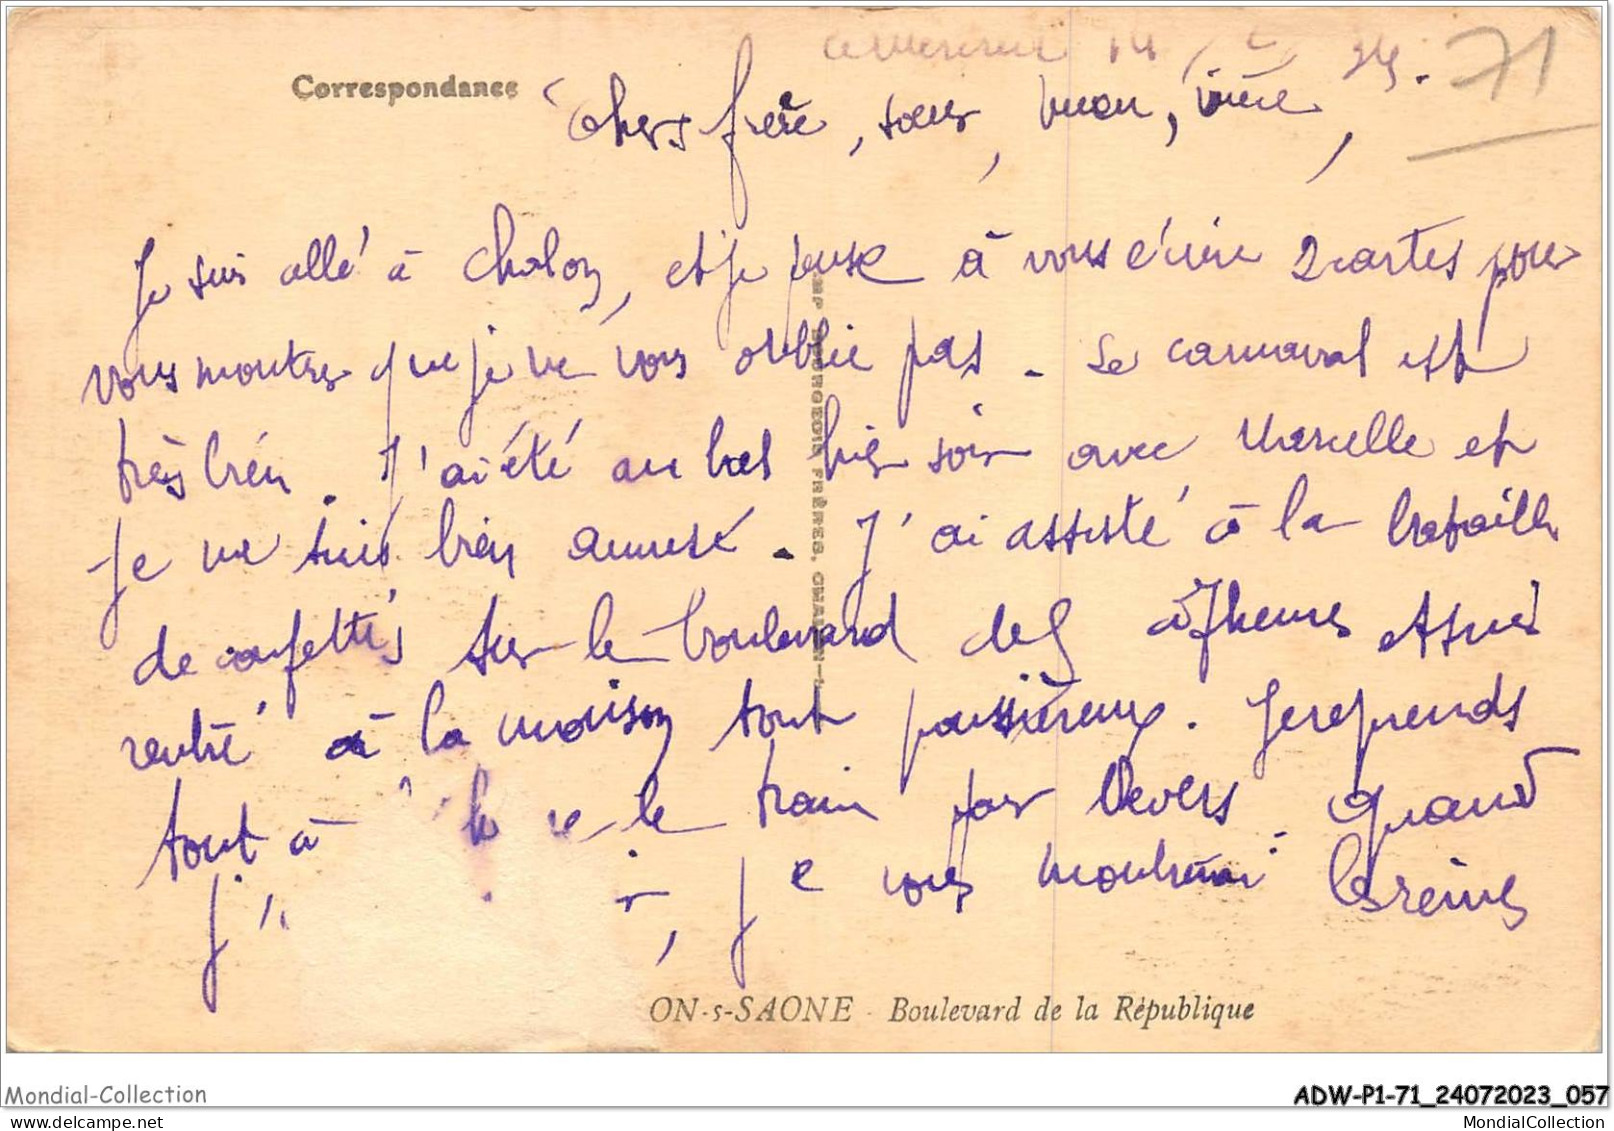 14 / 2 / 34.
71
Correspondance
Chers frère, sœur,
Je suis allé à Chalon, et je pense à vous écrire 2 cartes pour
vous montrer que je ne vous oublie pas. Le carnaval est
très bien. J'ai été au bal hier soir avec Marcelle et
je me suis bien amusé. J'ai assisté à la bataille
de confettis sur le boulevard de 5 à 7 heures et suis
rentré à la maison tout poussiéreux. Je reprends
tout à le train par Nevers. Quand
j' , je vous montrerai les reines
IMP BOURGEOIS FRÈRES, CHALON-
ON-s-SAONE - Boulevard de la République
Mondial-Collection
ADW-P1-71_24072023_057
MondialCollection.com
MondialCollection